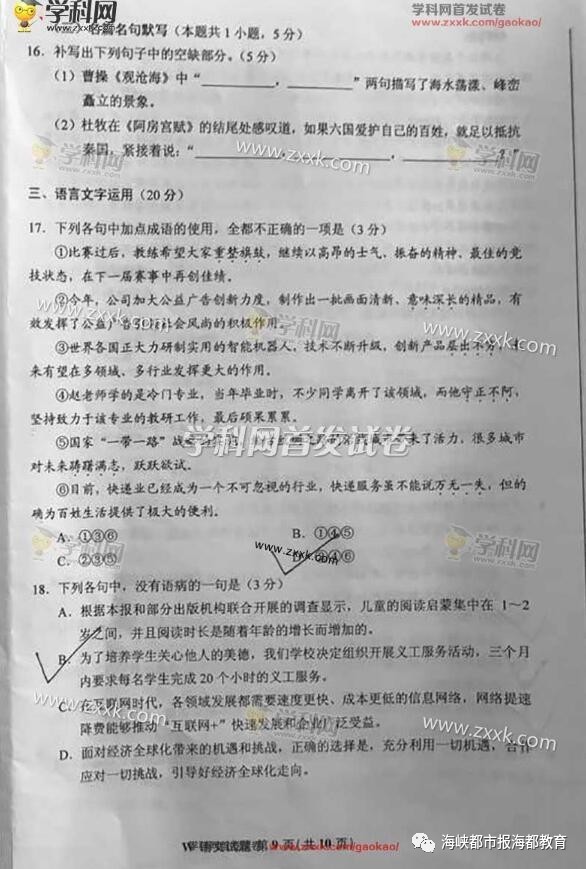 学科网首发试卷
www.zxxk.com/gaokao/
名篇名句默写（本题共1小题，5分）
16. 补写出下列句子中的空缺部分。（5分）
（1）曹操《观沧海》中“__________，__________”两句描写了海水荡漾、峰峦
矗立的景象。
（2）杜牧在《阿房宫赋》的结尾处感叹道，如果六国爱护自己的百姓，就足以抵抗
秦国，紧接着说：“__________，__________，__________？”
三、语言文字运用（20分）
17. 下列各句中加点成语的使用，全都不正确的一项是（3分）
①比赛过后，教练希望大家重整旗鼓，继续以高昂的士气、振奋的精神、最佳的竞
技状态，在下一届赛事中再创佳绩。
②今年，公司加大公益广告创新力度，制作出一批画面清新、意味深长的精品，有
效发挥了公益广告引领社会风尚的积极作用。
③世界各国正大力研制实用的智能机器人，技术不断升级，创新产品层出不穷，未
来有望在多领域、多行业发挥更大的作用。
④赵老师学的是冷门专业，当年毕业时，不少同学离开了该领域，而他守正不阿，
坚持致力于该专业的教研工作，最后硕果累累。
⑤国家“一带一路”战 来了活力，很多城市
对未来踌躇满志，跃跃欲试。
⑥目前，快递业已经成为一个不可忽视的行业，快递服务虽不能说万无一失，但的
确为百姓生活提供了极大的便利。
A. ①③⑥ B. ①④⑤
C. ②③⑤ ④⑥
18. 下列各句中，没有语病的一句是（3分）
A. 根据本报和部分出版机构联合开展的调查显示，儿童的阅读启蒙集中在 1～2
岁之间，并且阅读时长是随着年龄的增长而增加的。
B. 为了培养学生关心他人的美德，我们学校决定组织开展义工服务活动，三个月
内要求每名学生完成 20 个小时的义工服务。
C. 在互联网时代，各领域发展都需要速度更快、成本更低的信息网络，网络提速
降费能够推动“互联网+”快速发展和企业广泛受益。
D. 面对经济全球化带来的机遇和挑战，正确的选择是，充分利用一切机遇，合作
应对一切挑战，引导好经济全球化走向。
语文试题 第 9 页（共 10 页）
海峡都市报海都教育